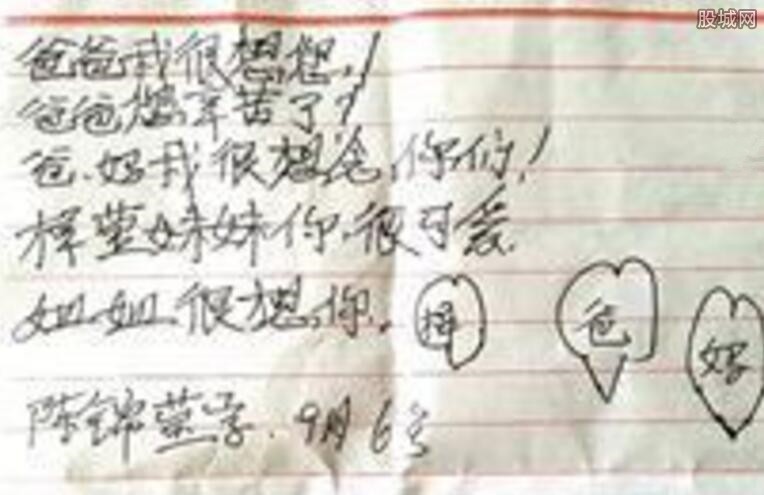 股城网
爸爸我很想您!
爸爸您辛苦了!
爸.妈我很想念你们!
梓莹妹妹你很可爱
姐姐很想你.
梓
爸
妈
陈锦莹字.9月6号